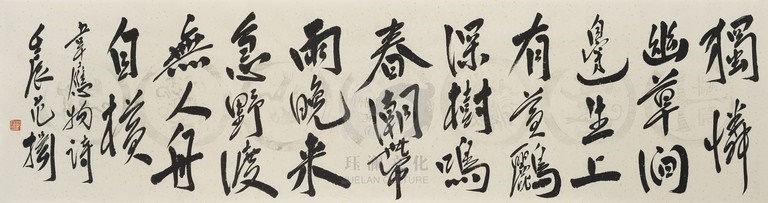 獨憐
幽草澗
邊生上
有黃鸝
深樹鳴
春潮帶
雨晚来
急野渡
無人舟
自橫
韋應物詩
壬辰范
CULTURE